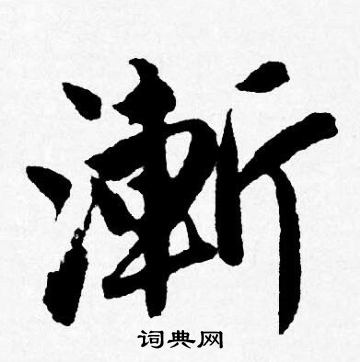 漸
词典网